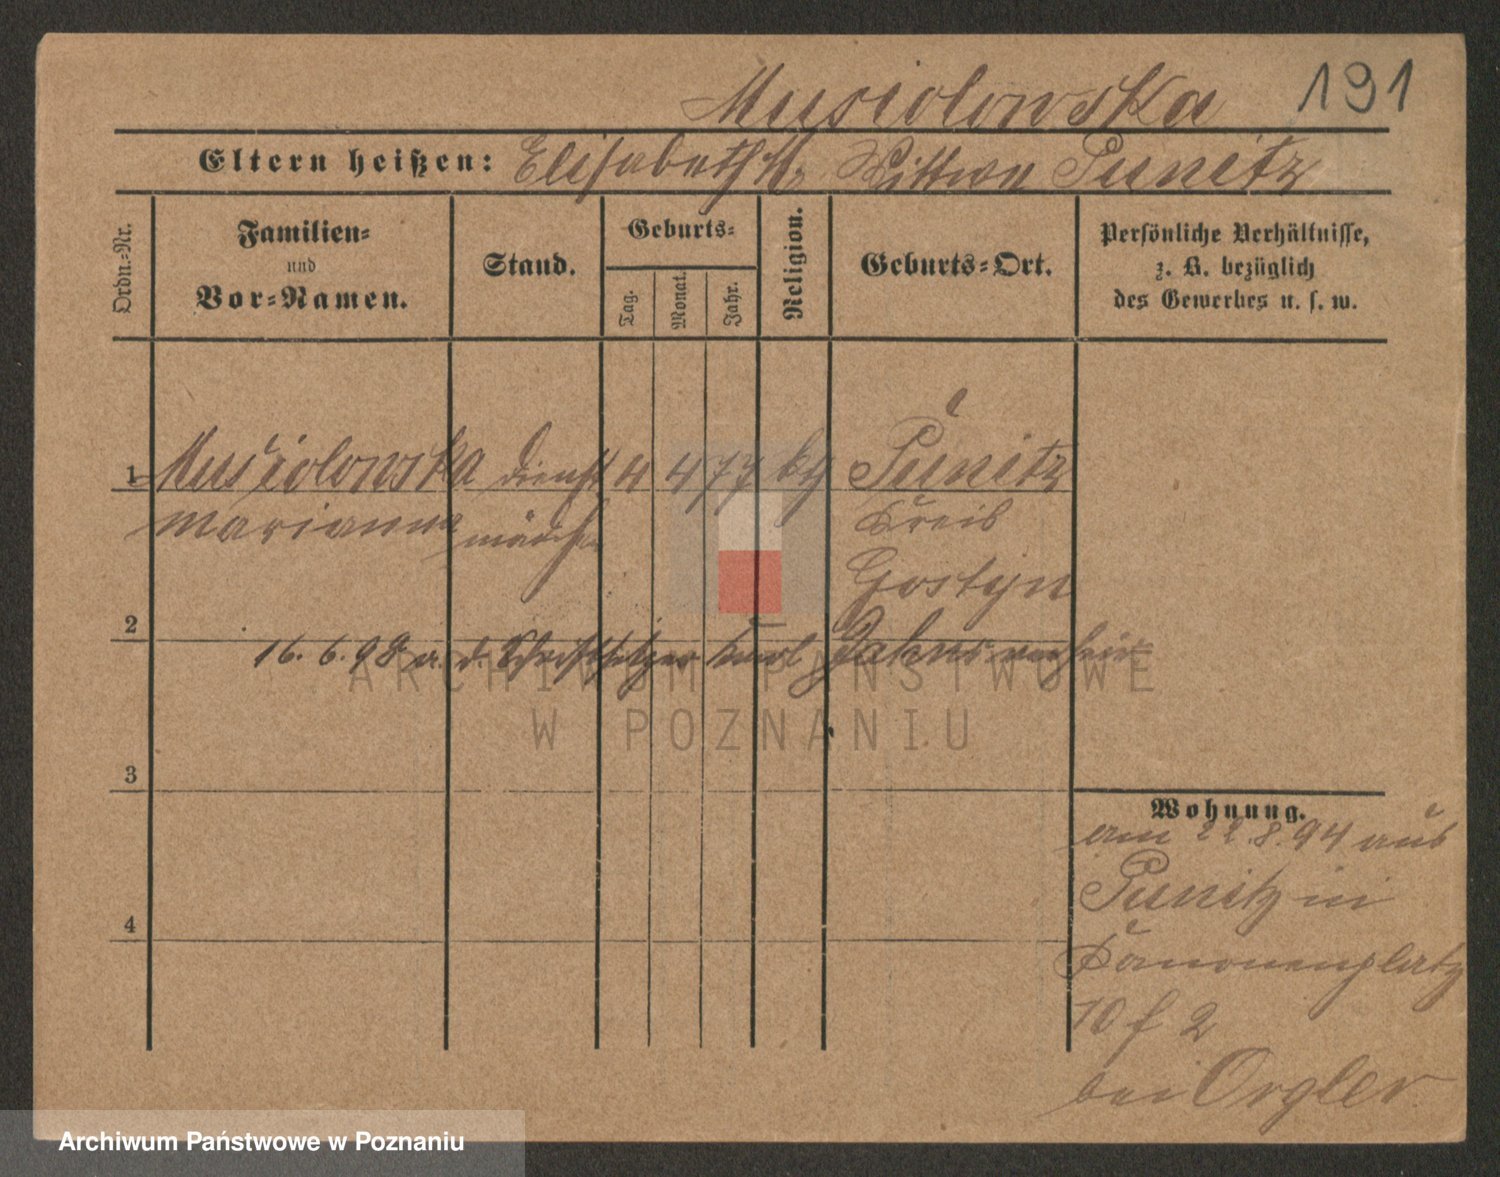 Musiolowska 191
Eltern heißen: Elisabeth M. Wittwe Punitz
Ordn.-Nr.
Familien-
und
Vor-Namen.
Stand.
Geburts-
Tag.
Monat.
Jahr.
Religion.
Geburts-Ort.
Persönliche Verhältnisse,
z. B. bezüglich
des Gewerbes u. s. w.
1 Musiolowska Dienst 4 4 77 kth Punitz
Marianna mädchen Kreis
Gostyn
2
16. 6. 98 m. d. Schriftsetzer Karl Jahns verheir.
ARCHIWUM PAŃSTWOWE
W POZNANIU
3
Wohnung.
am 22.8.94 aus
Punitz in
4
Kanonenplatz
10 f 2
bei Orgler
Archiwum Państwowe w Poznaniu